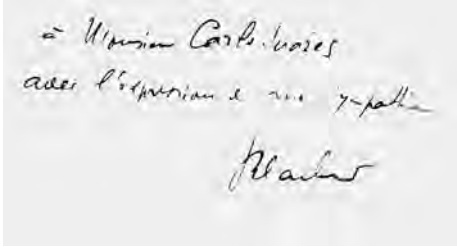 à Monsieur Carlo Suarès
avec l'expression de ma sympathie